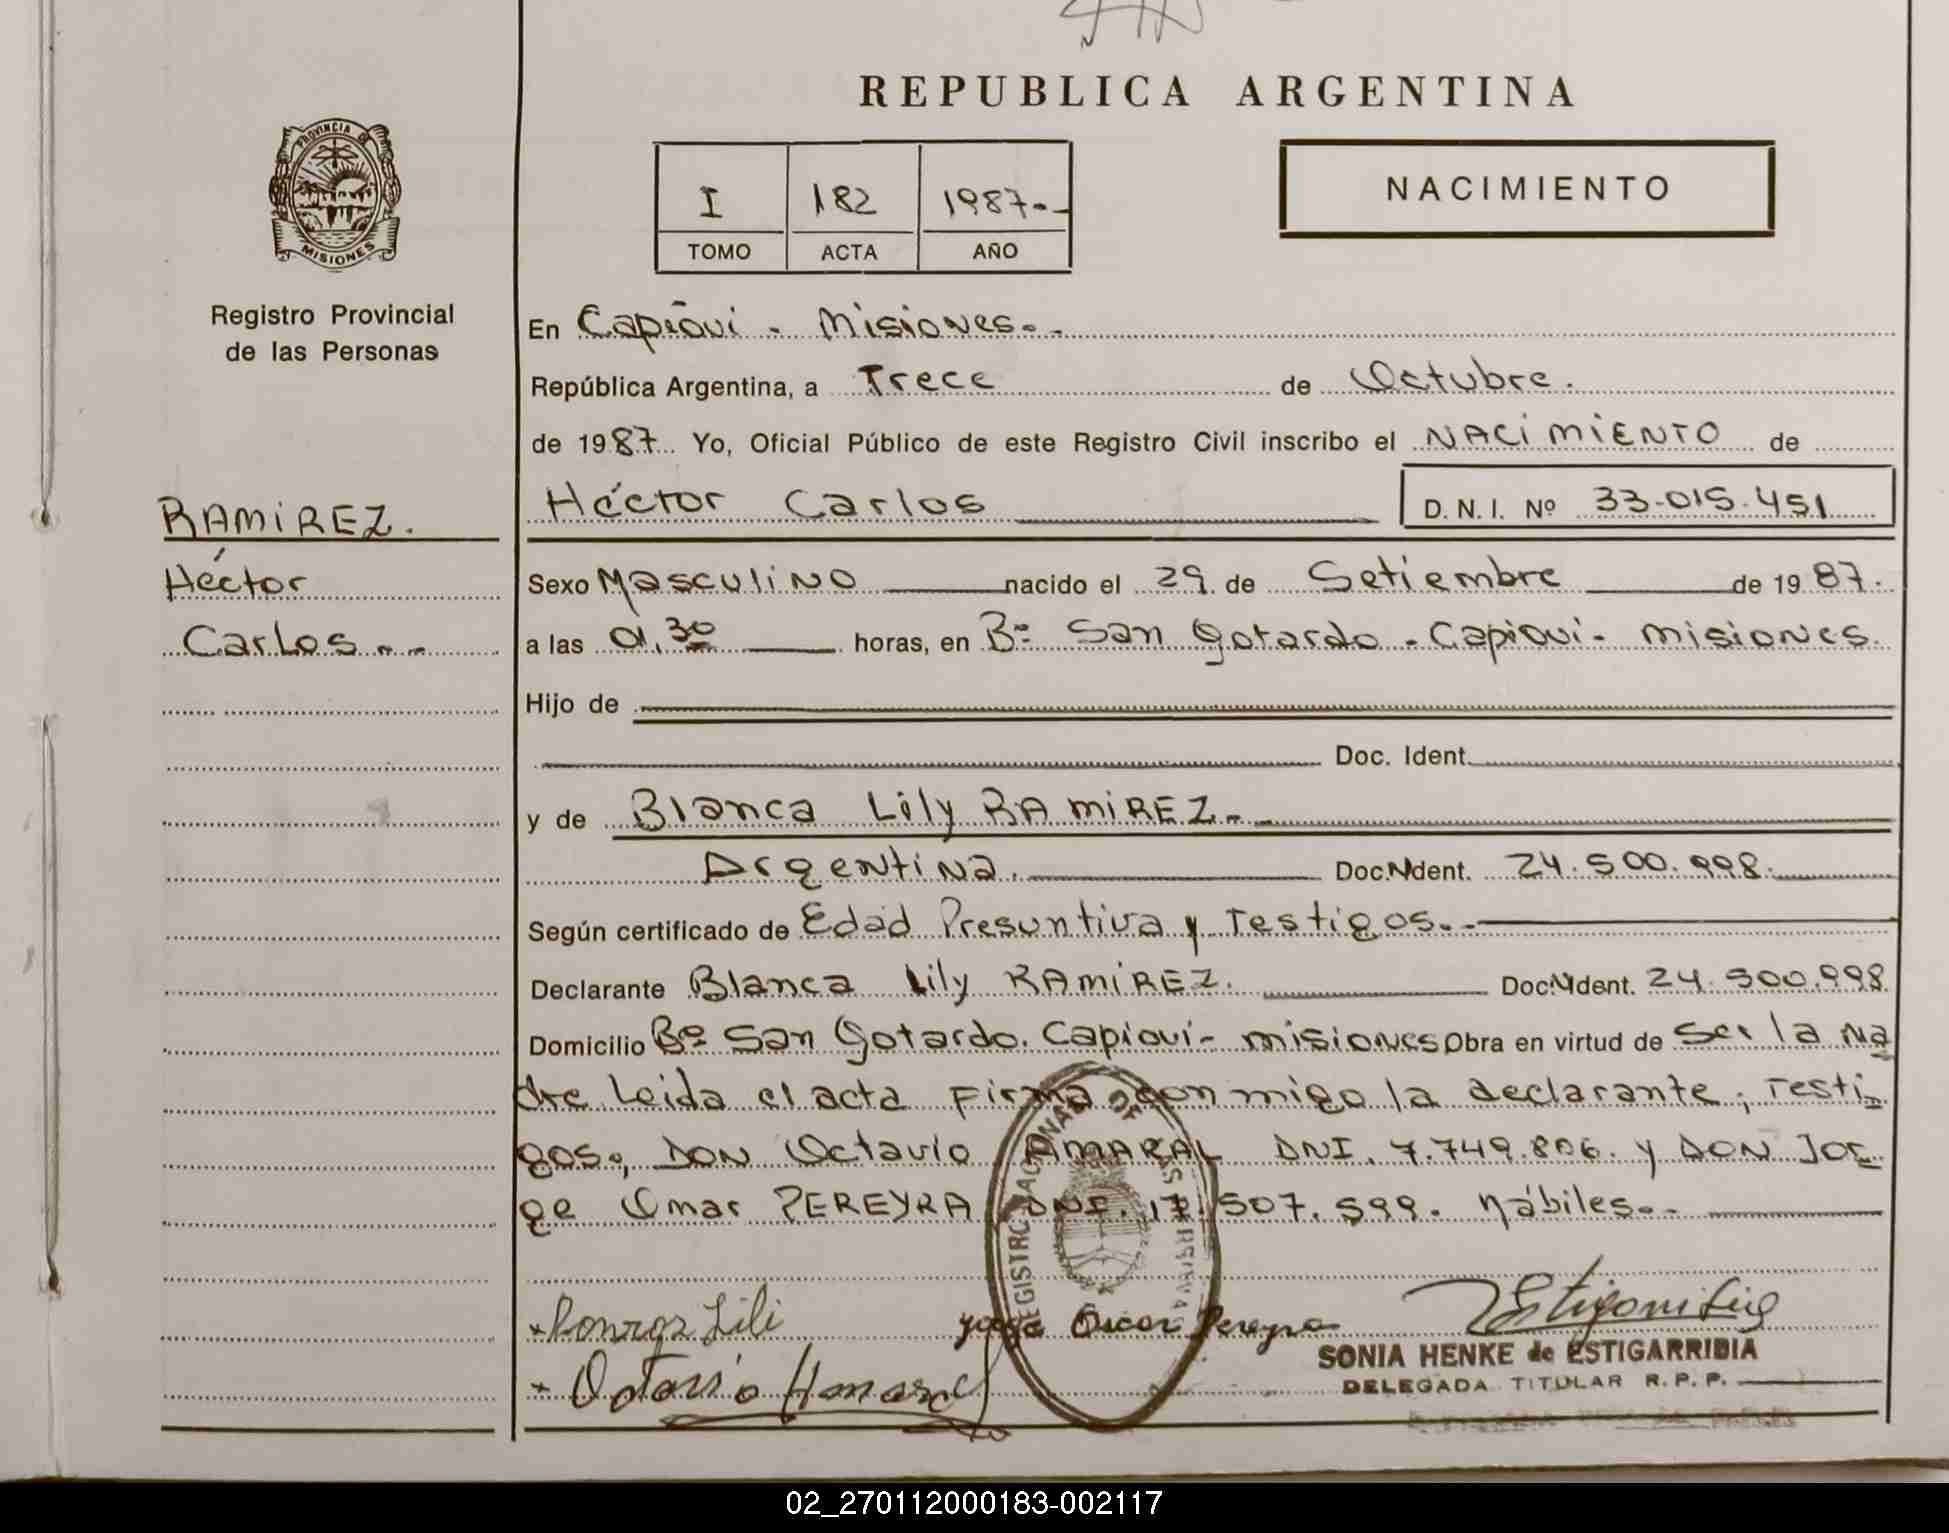 REPUBLICA ARGENTINA
PROVINCIA DE
MISIONES
I 182 1987.-
TOMO ACTA AÑO
NACIMIENTO
Registro Provincial
de las Personas
RAMIREZ.
Héctor
Carlos.-
En Capiovi - Misiones.-
República Argentina, a Trece de Octubre.
de 1987. Yo, Oficial Público de este Registro Civil inscribo el NACIMIENTO de
Héctor Carlos D. N. I. Nº 33.015.451
Sexo Masculino nacido el 29 de Setiembre de 1987.
a las 01,30 horas, en Bº San Gotardo - Capiovi - Misiones.
Hijo de
Doc. Ident.
y de Blanca Lily RAMIREZ.-
Argentina. Doc. Ident. 24.500.998.
Según certificado de Edad Presuntiva y Testigos.-
Declarante Blanca Lily RAMIREZ. Doc. Ident. 24.500.998
Domicilio Bº San Gotardo. Capiovi - Misiones Obra en virtud de ser la ma
dre Leida el acta Firma conmigo la declarante, Testi-
gos, DON Octavio AMARAL DNI. 7.749.806. y DON Jor
ge Omar PEREYRA DNI. 17.507.599. hábiles.-
Lili
Jorge Oscar Pereyra
Octavio
SONIA HENKE de ESTIGARRIBIA
DELEGADA TITULAR R. P. P.
02_270112000183-002117